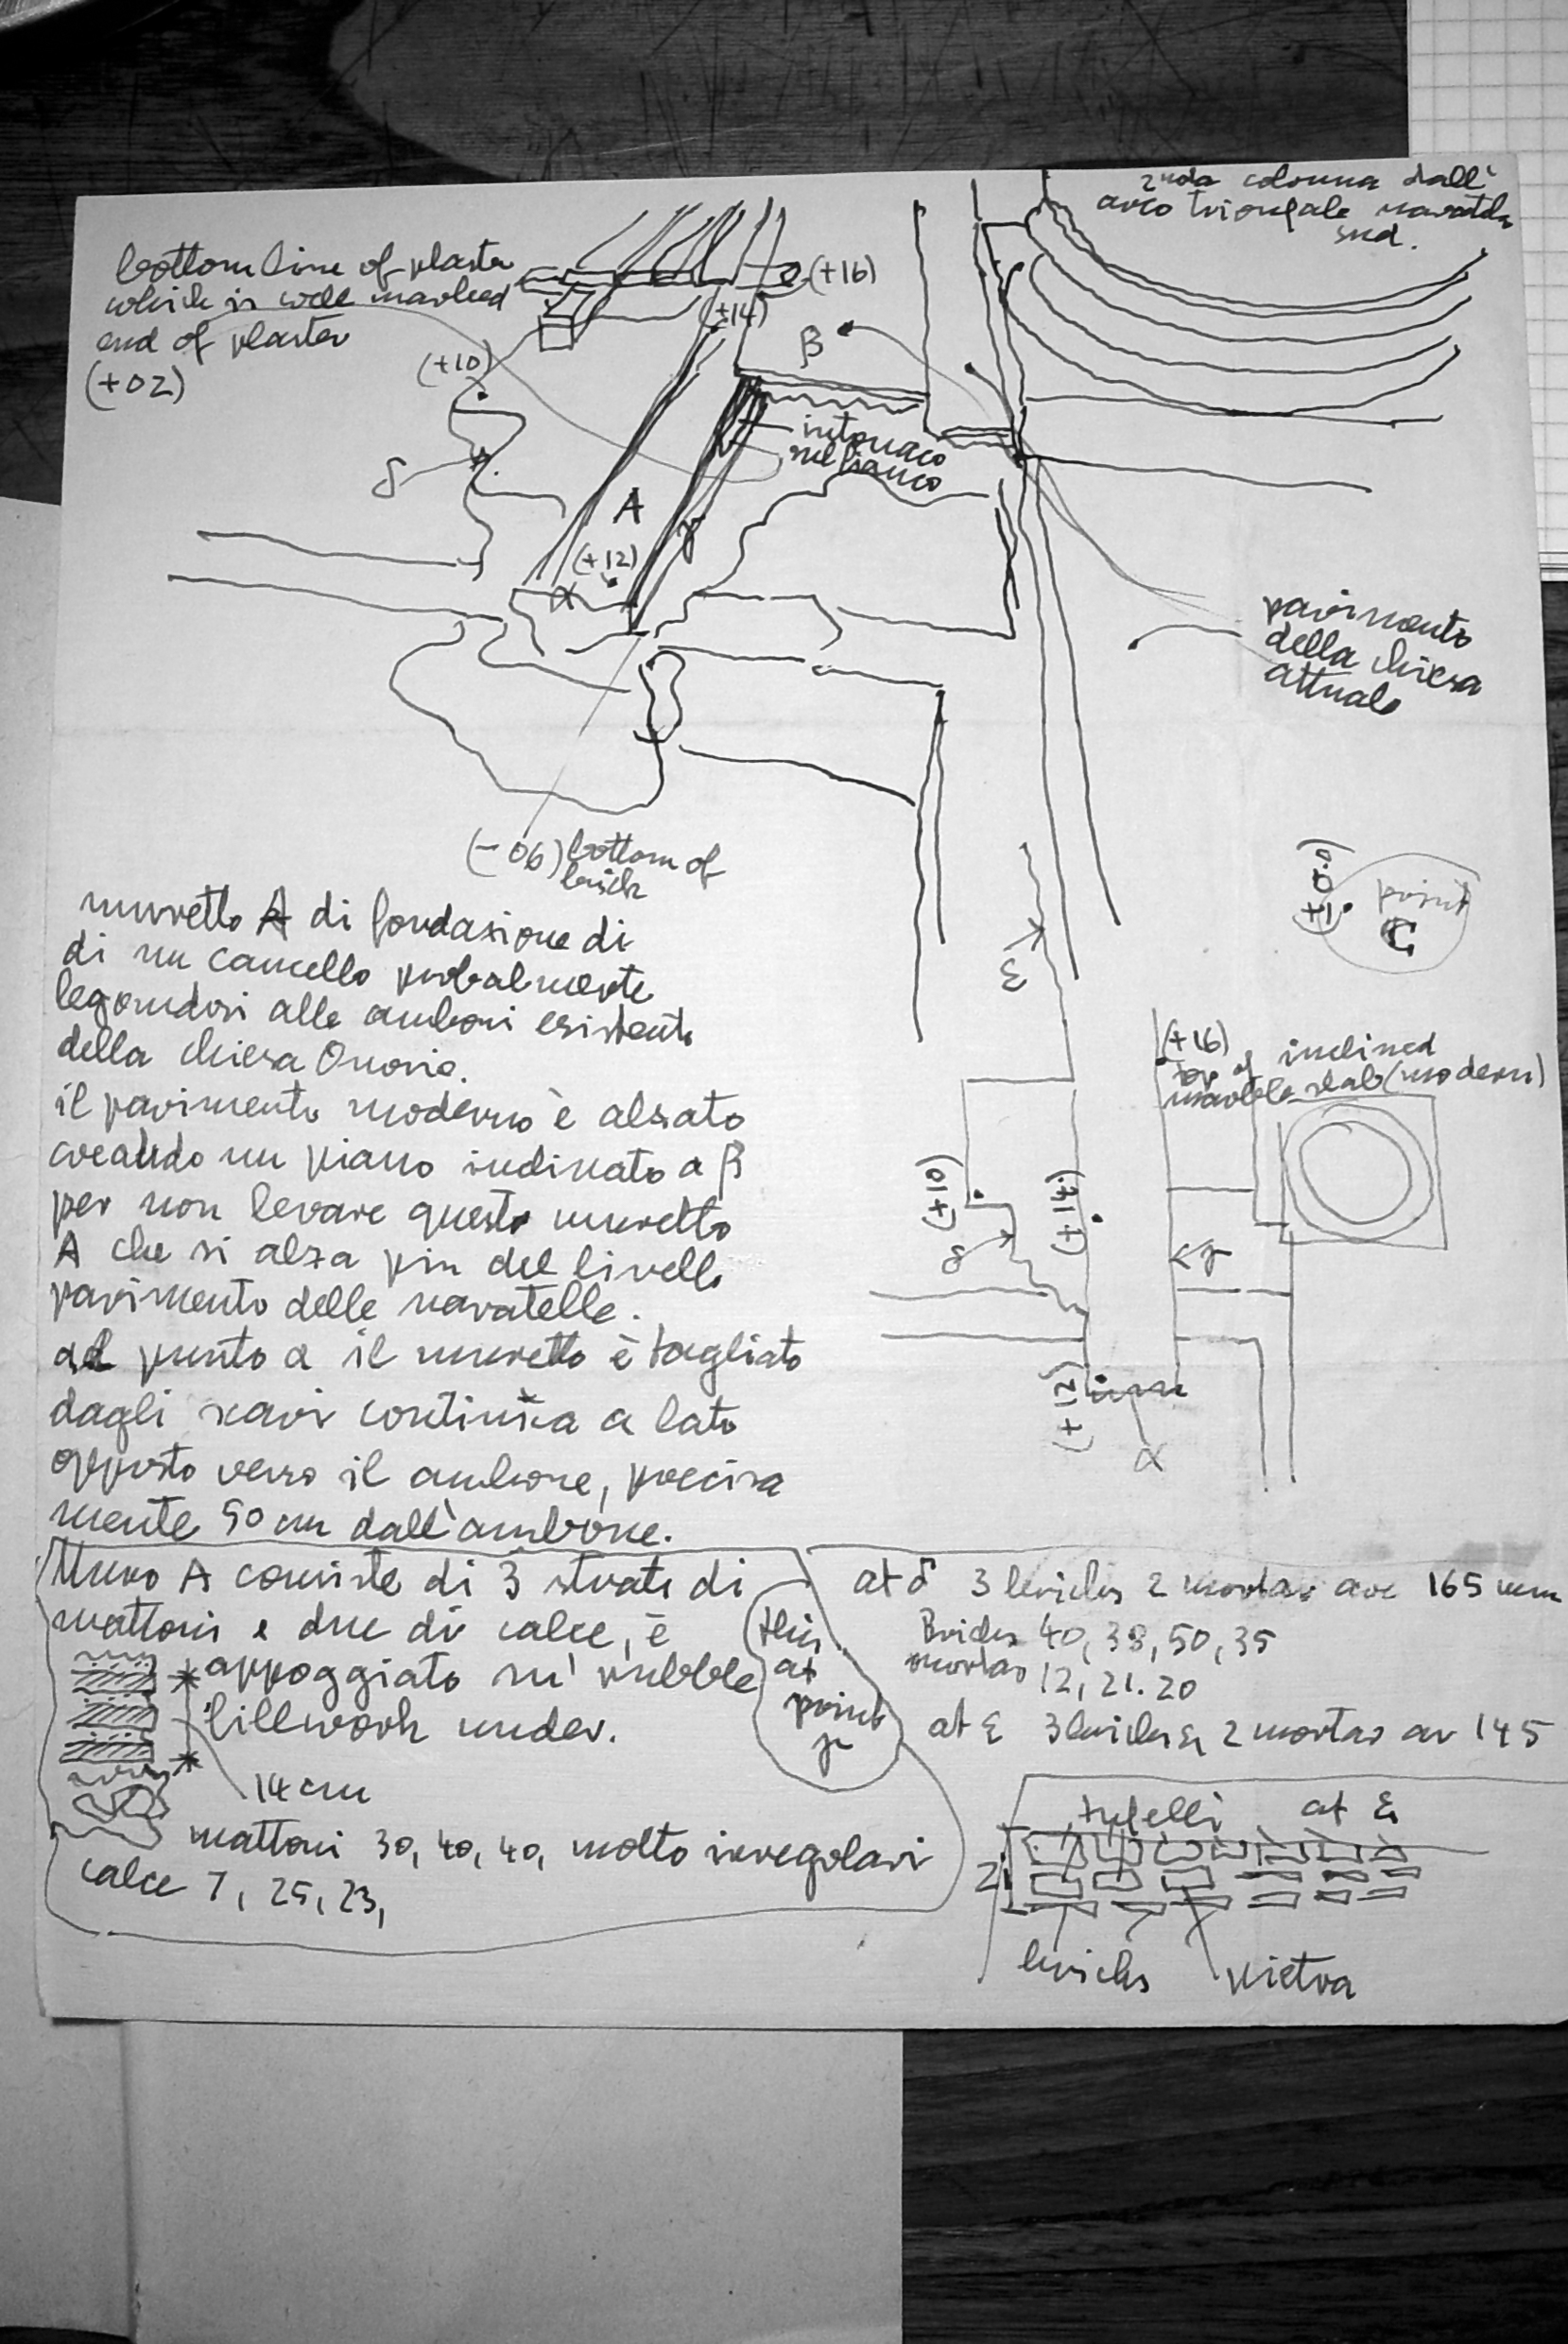 2nda colonna dall'
arco trionfale navatella
sud.
bottom line of plaster
which is well marked
end of plaster
(+02)
(+16)
(+14)
(+10)
β
intonaco
sul fianco
δ
A
γ
(+12)
α
pavimento
della chiesa
attuale
(-06) bottom of
brick
(±0.0)
point
C
ε
muretto A di fondazione di
di un cancello probalmente
legondosi alle amboni esistente
della chiesa Onorio.
il pavimento moderno è alsato
creando un piano indinato a β
per non levare questo muretto
A che si alza piu del livello
pavimento delle navatelle.
al punto α il muretto è tagliato
dagli scavi continua a lato
opposto verso il ambone, precisa
mente 50 cm dall'ambone.
(+16)
top of inclined
marble slab (modern)
(+10)
(+14)
δ
γ
(+12)
α
Muro A consiste di 3 strati di
mattoni e due di calce, è
appoggiato su' rubble
fillwork under.
this
at
point
γ
14 cm
mattoni 30, 40, 40, molto irregolari
calce 7, 25, 23,
at δ 3 bricks 2 mortar are 165 mm
Bricks 40, 38, 50, 35
mortar 12, 21. 20
at ε 3 bricks & 2 mortar av 145
tufelli at ε
bricks pietra